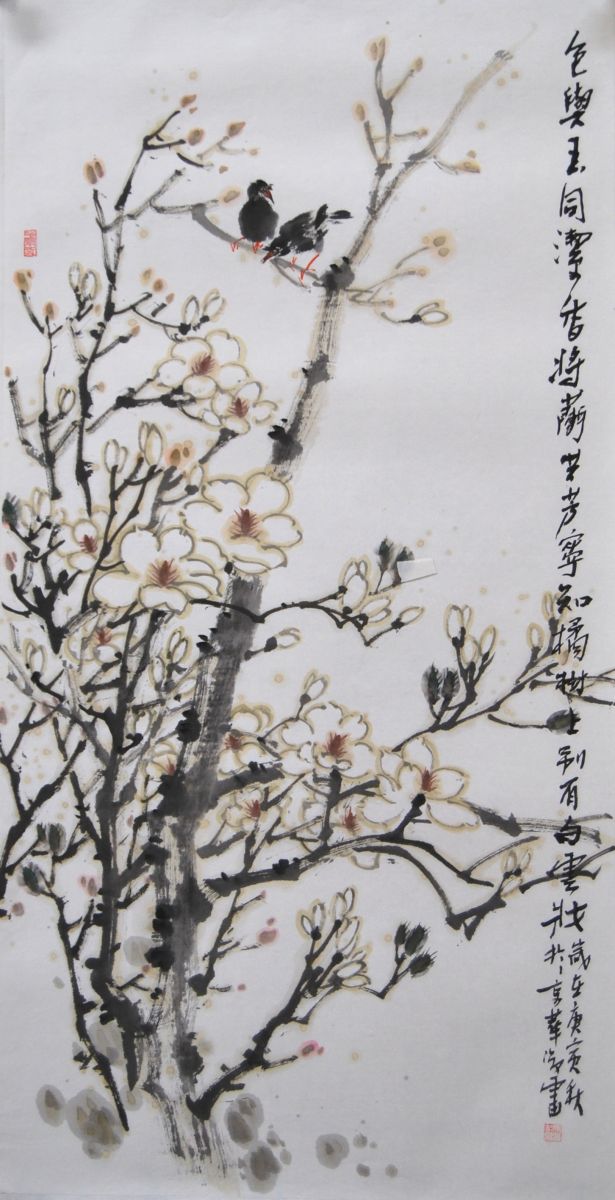 色與玉同潔香將蘭共芳寧知橘樹上別有白雲妝
歲在庚寅秋
於京華